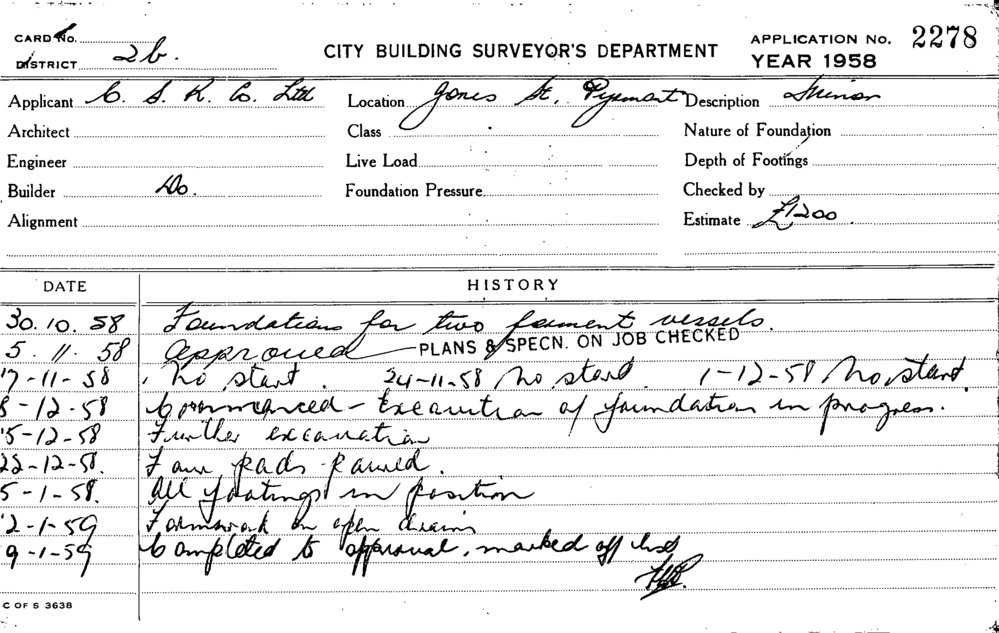 CARD No.
DISTRICT 2b.
CITY BUILDING SURVEYOR'S DEPARTMENT
APPLICATION No. 2278
YEAR 1958
Applicant C. S. R. Co. Ltd Location Jones St, Pyrmont Description Minor
Architect Class Nature of Foundation
Engineer Live Load Depth of Footings
Builder Do. Foundation Pressure Checked by
Alignment Estimate £1200.
DATE HISTORY
30.10.58 Foundations for two ferment vessels.
5.11.58 Approved PLANS & SPECN. ON JOB CHECKED
17-11-58 No start. 24-11-58 No start. 1-12-58 No start.
8-12-58 Commenced - Excavation of foundation in progress.
15-12-58 Further excavation
22-12-58. Four pads poured.
5-1-58. All footings in position
12-1-59 Formwork on open drains
19-1-59 Completed to approval, marked off
C OF S 3638